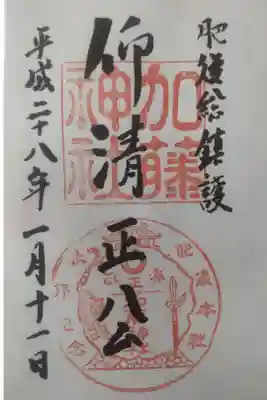 肥後総鎮護
仰清正公
平成二十八年一月十一日
加藤神社